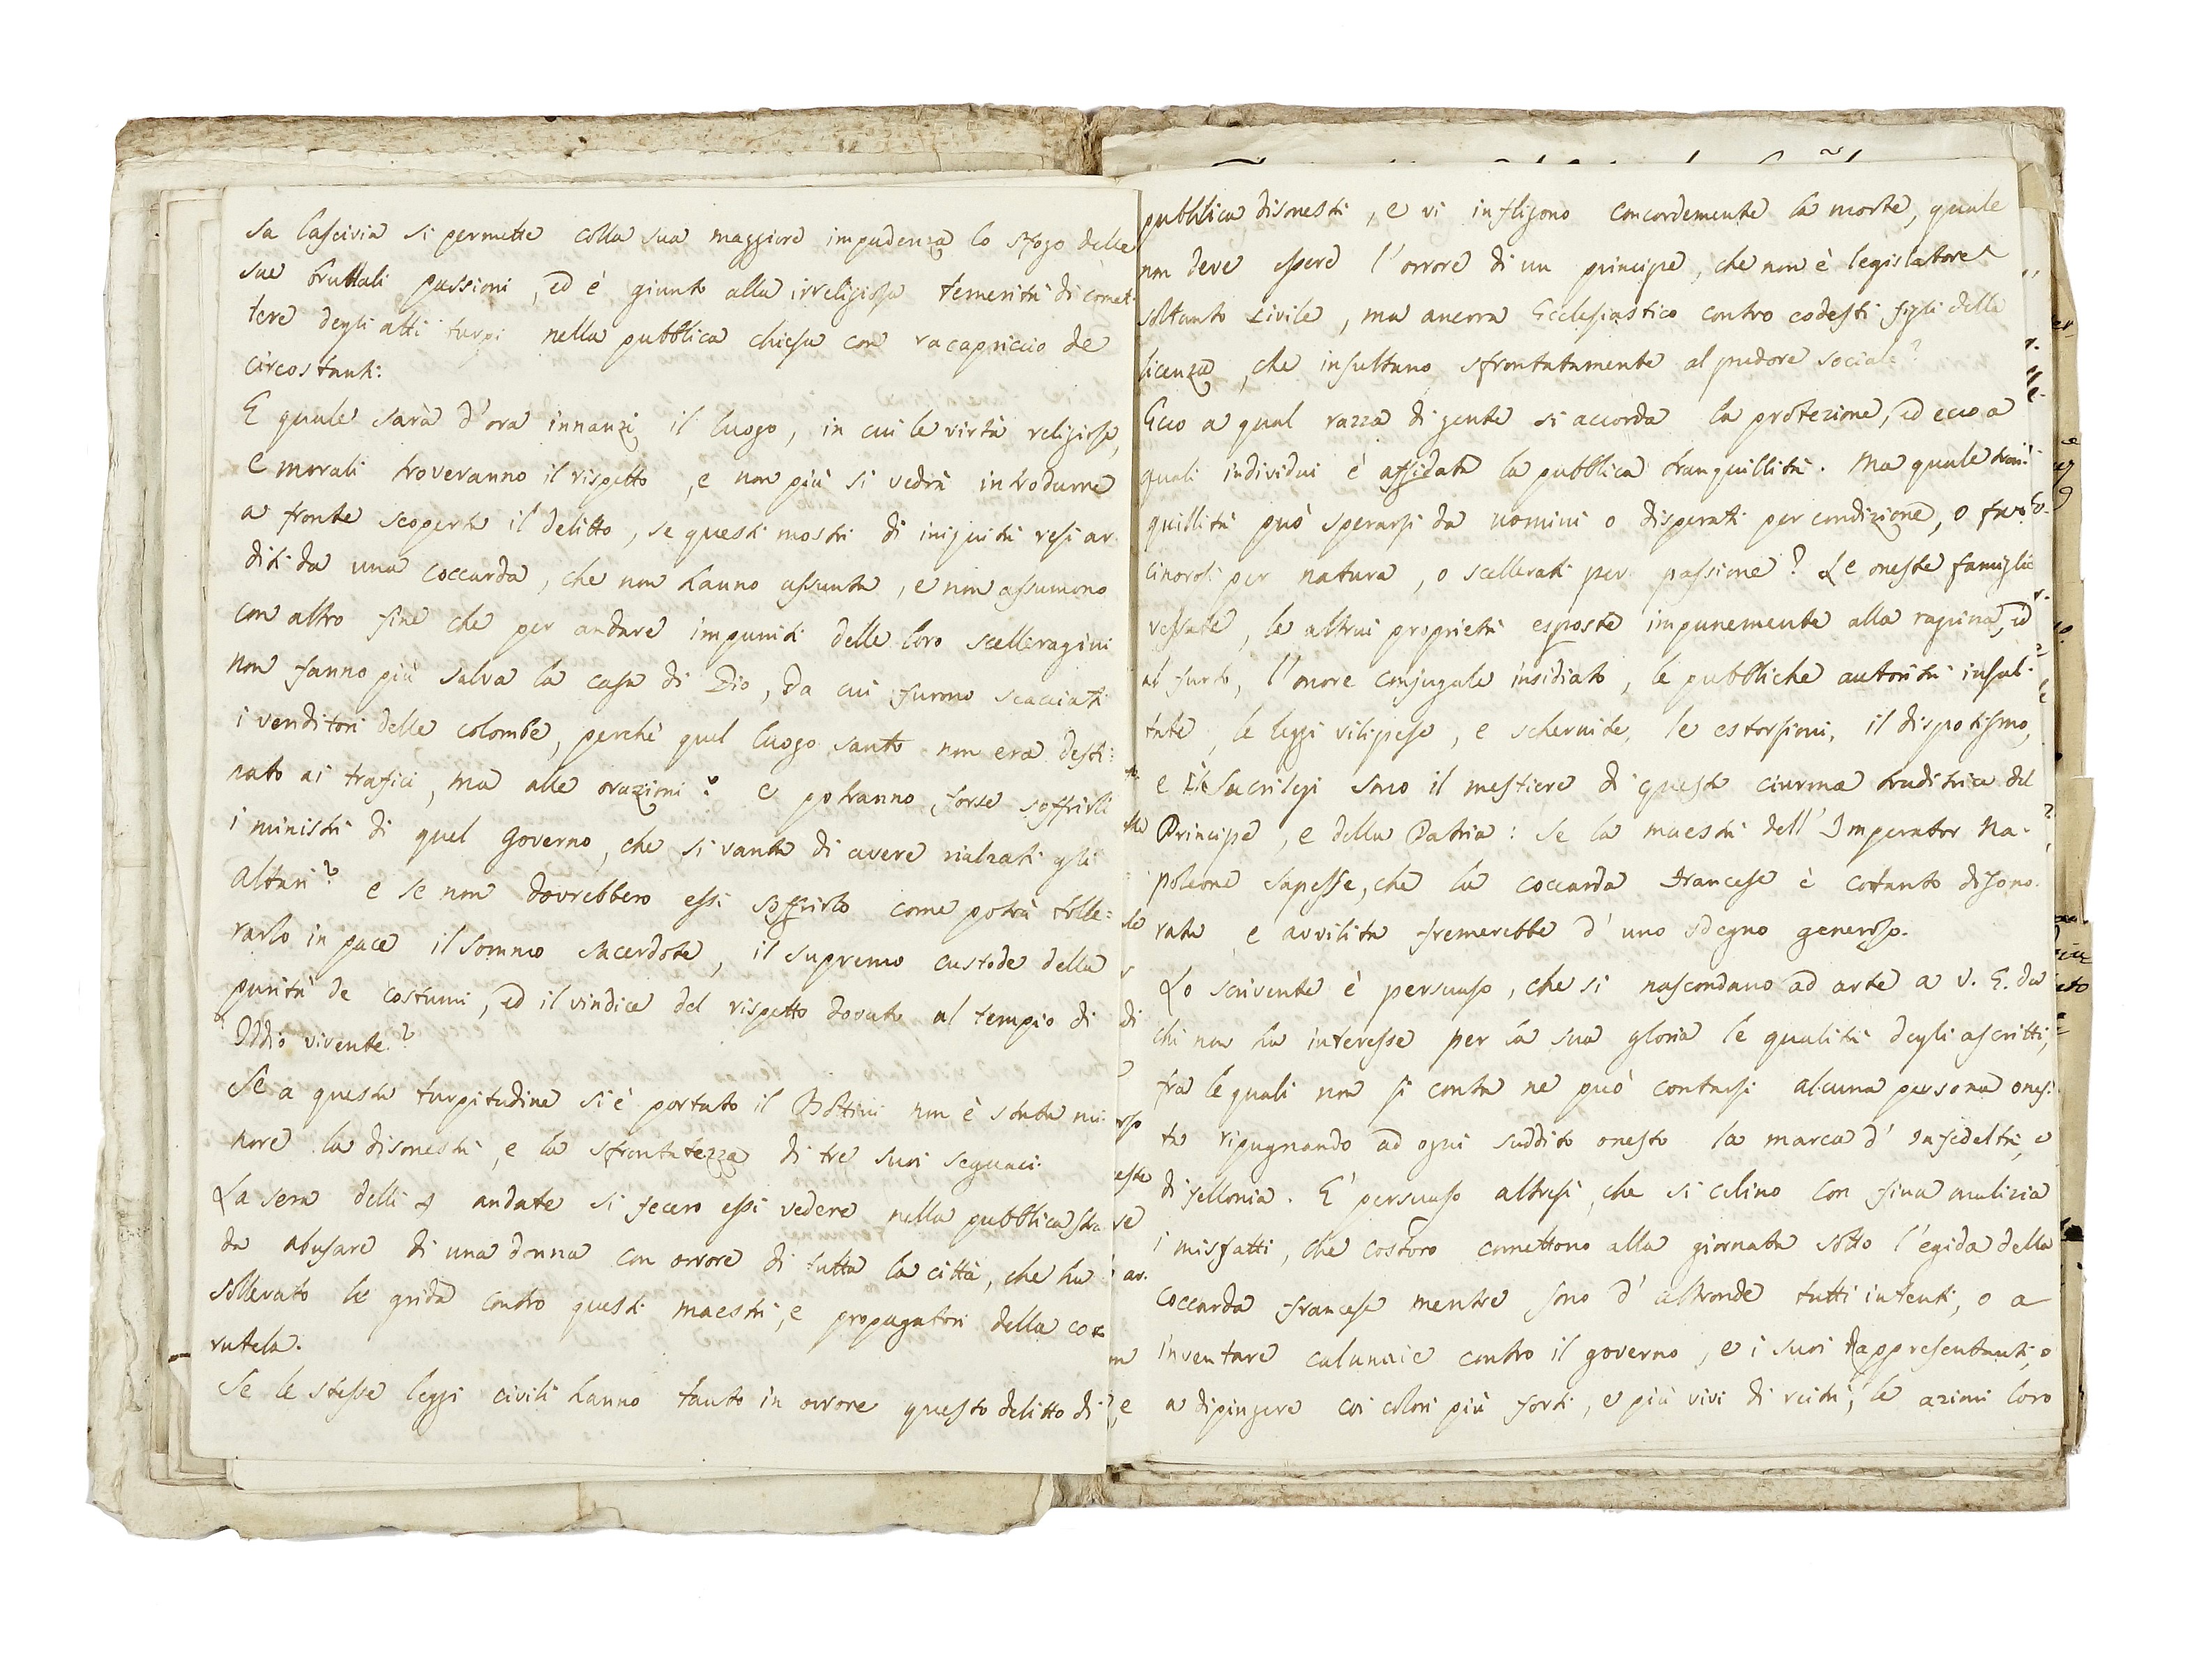 sa lascivia si permette colla sua maggiore impudenza lo sfogo delle
sue bruttali passioni, ed è giunto alla irreligiosa temerità di comet:
tere degli atti turpi nella pubblica chiesa con racapriccio de
circostanti.
E quale sarà d'ora innanzi il luogo, in cui le virtù religiose,
e morali troveranno il rispetto, e non più si vedrà introdurre
a fronte scoperta il delitto, se questi mostri di iniquità resi ar
diti da una coccarda, che non hanno assunta, e non assumono
con altro fine che per andare impuniti delle loro scelleragini
non fanno più salva la casa di Dio, da cui furono scacciati
i venditori delle colombe, perchè quel luogo santo non era desti:
nato ai trafici, ma alle orazioni? e potranno forse soffrirli
i ministri di quel Governo, che si vanta di avere rialzati gli
altari? e se non dovrebbero essi soffrirlo come potrà tolle:
rarlo in pace il sommo sacerdote, il supremo custode della
purità de costumi, ed il vindice del rispetto dovuto al tempio di
Iddio vivente?
Se a questa turpitudine si è portato il Bottini non è stata mi:
nore la disonestà, e la sfrontatezza di tre suoi seguaci.
La sera delli andate si fecero essi vedere nella pubblica stra
da abusare di una donna con orrore di tutta la città, che ha
sollevato le grida contro questi maestri, e propagatori della cor
rutela.
Se le stesse leggi civili hanno tanto in orrore questo delitto di
pubblica disonestà, e vi infligono concordemente la morte, quale
non deve essere l'orrore di un principe, che non è legislatore
soltanto civile, ma ancora Ecclesiastico contro codesti figli della
licenza, che insultano sfrontatamente al pudore sociale?
Ecco a qual razza di gente si accorda la protezione, ed ecco a
quali individui è affidata la pubblica tranquillità. Ma quale tran:
quillità può sperarsi da uomini o disperati per condizione, o fa
cinorosi per natura, o scellerati per passione? Le oneste famiglie
vessate, le altrui proprietà esposte impunemente alla rapina, ed
al furto, l'onore conjugale insidiato, le pubbliche autorità insul:
tate, le leggi vilipese, e schernite, le estorsioni, il dispotismo,
e i Sacrilegi sono il mestiere di questa ciurma traditrice del
Principe, e della Patria: Se la maestà dell'Imperator Na-
poleone sapesse, che la coccarda Francese è cotanto disono.
rata, e avvilita fremerebbe d'uno sdegno generoso.
Lo scrivente è persuaso, che si nascondano ad arte a V. E. da
chi non ha interesse per la sua gloria le qualità degli ascritti,
fra le quali non si conta ne può contarsi alcuna persona ones:
ta ripugnando ad ogni suddito onesto la marca d'Infedeltà, e
di fellonia. E' persuaso altresì, che si celino con fina malizia
i misfatti, che costoro comettono alla giornata sotto l'egida della
Coccarda francese mentre sono d'altronde tutti intenti, o a
inventare calunnie contro il governo, e i suoi Rappresentanti, o
a dipingere coi colori più forti, e più vivi di reità, le azioni loro